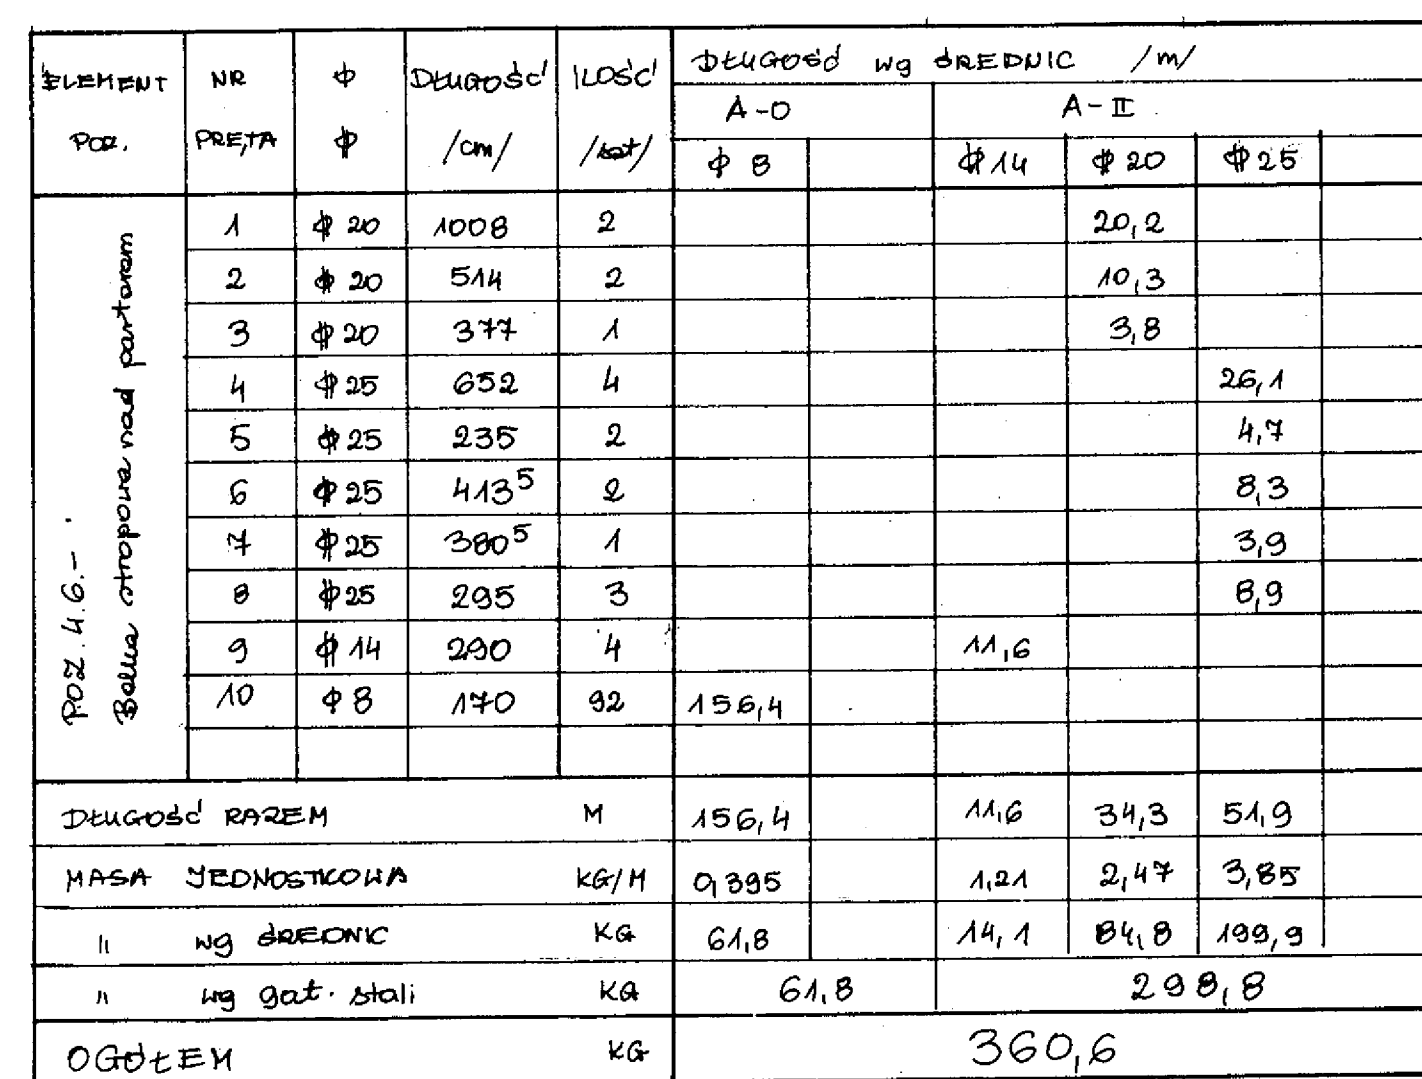 ELEMENT POZ. NR PRĘTA ϕ ϕ DŁUGOŚĆ /cm/ ILOŚĆ /szt/ DŁUGOŚĆ wg ŚREDNIC /m/
A-0 A-II
ϕ 8 ϕ 14 ϕ 20 ϕ 25
POZ. 4.6.-
Belka stropowa nad parterem
1 ϕ 20 1008 2 20,2
2 ϕ 20 514 2 10,3
3 ϕ 20 377 1 3,8
4 ϕ 25 652 4 26,1
5 ϕ 25 235 2 4,7
6 ϕ 25 413⁵ 2 8,3
7 ϕ 25 380⁵ 1 3,9
8 ϕ 25 295 3 8,9
9 ϕ 14 290 4 11,6
10 ϕ 8 170 92 156,4
DŁUGOŚĆ RAZEM M 156,4 11,6 34,3 51,9
MASA JEDNOSTKOWA KG/M 0,395 1,21 2,47 3,85
" wg ŚREDNIC KG 61,8 14,1 84,8 199,9
" wg gat. stali KG 61,8 298,8
OGÓŁEM KG 360,6